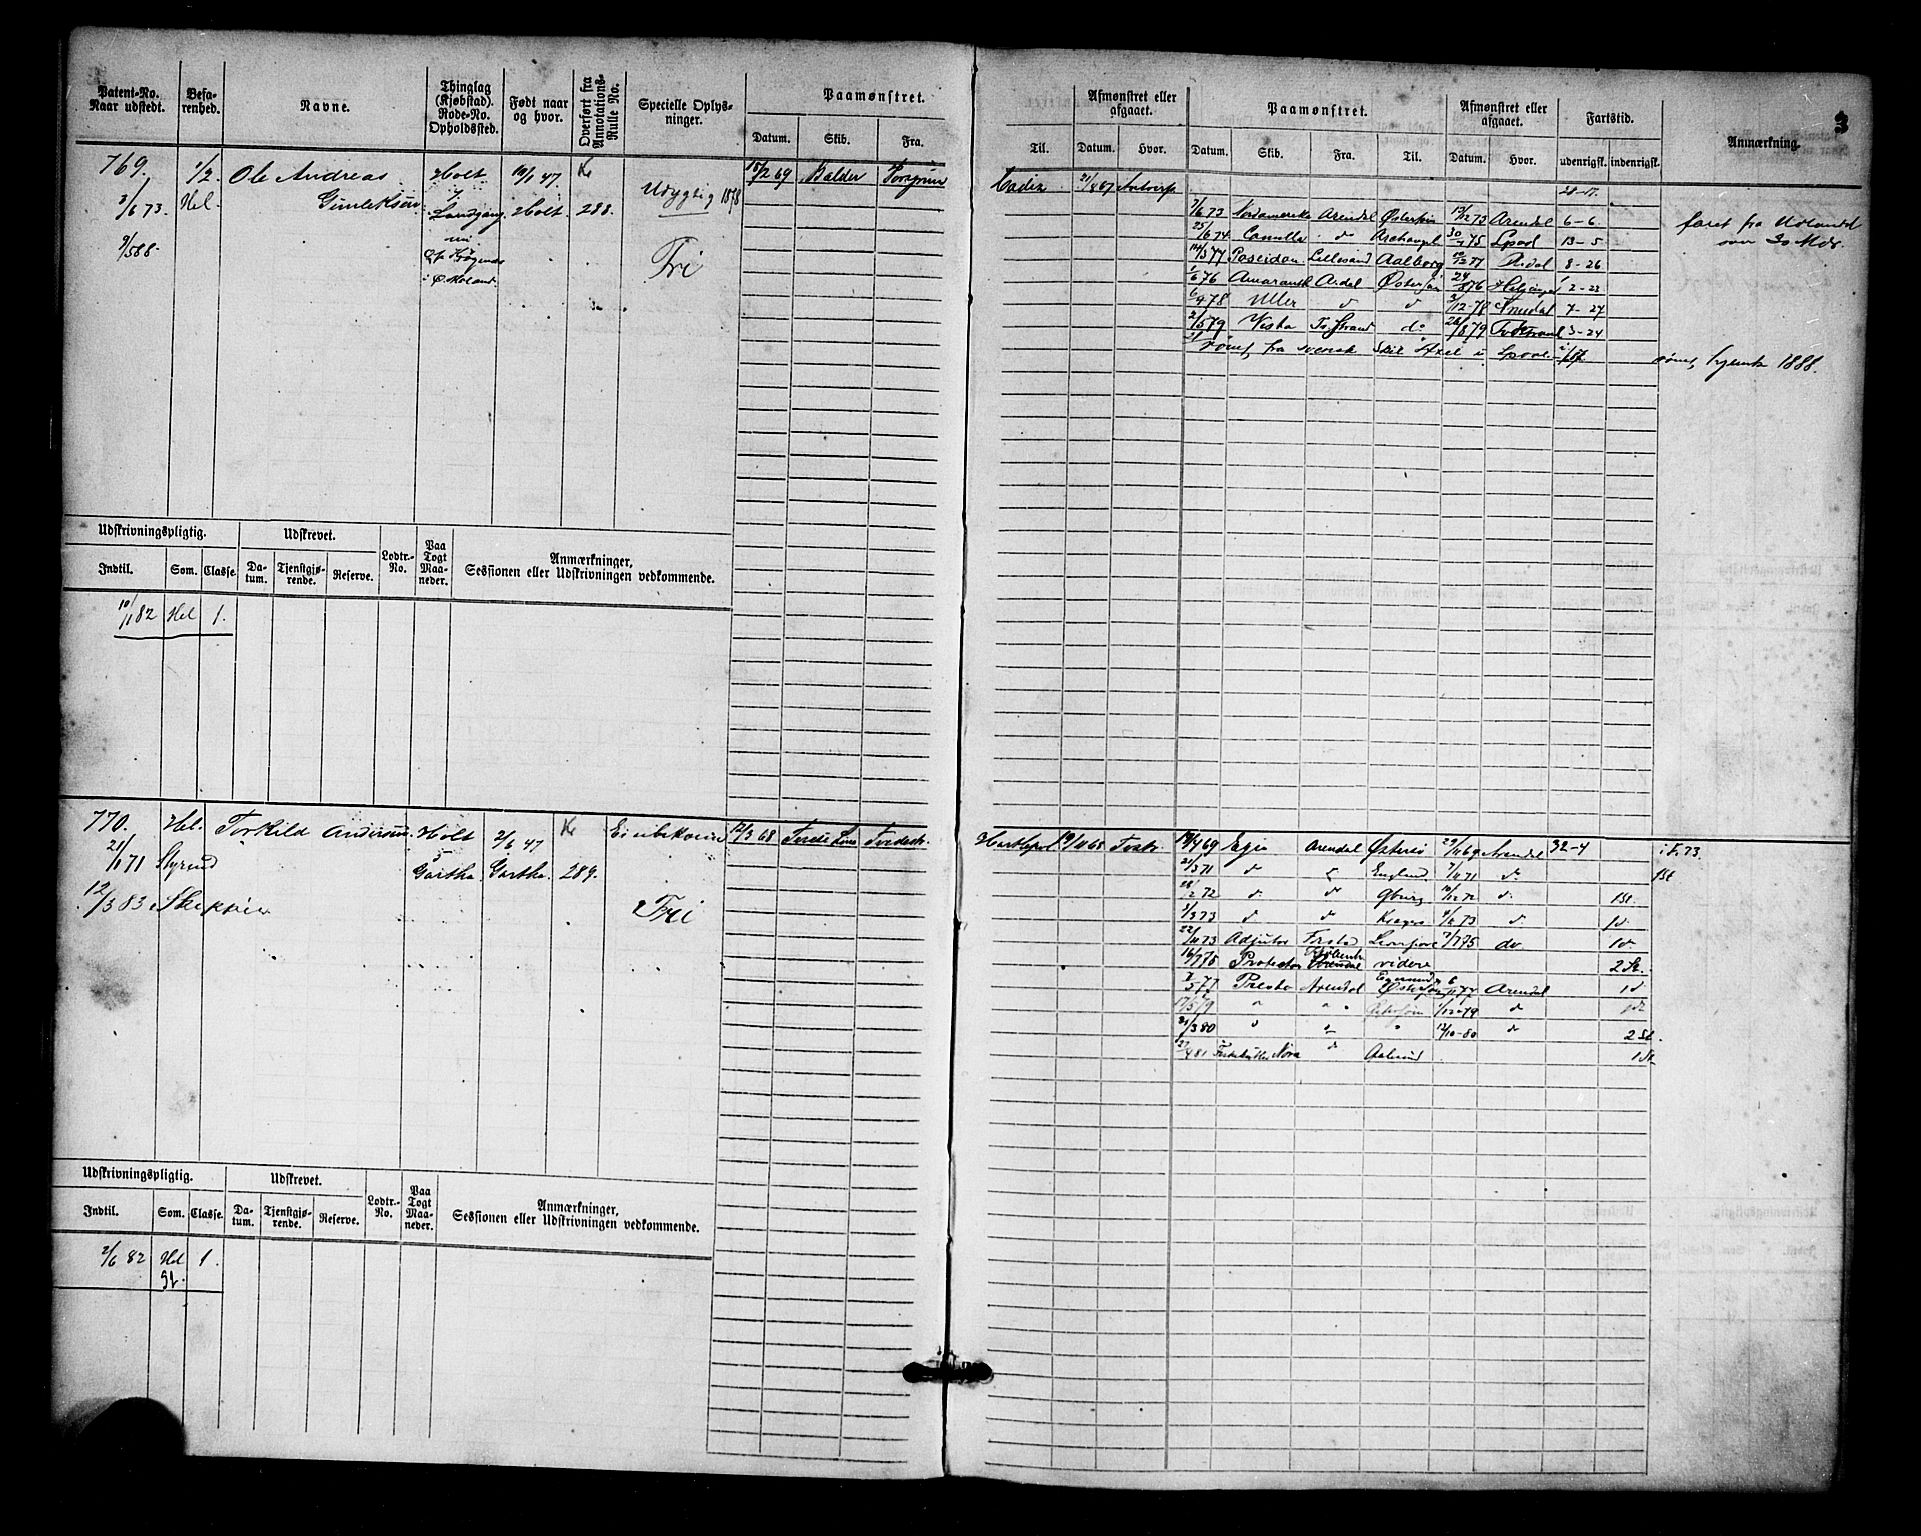 3
Patent-No. Naar udstedt.
Befarenhed.
Navne.
Thinglag (Kjøbstad). Rode-No. Opholdssted.
Født naar og hvor.
Overført fra Annotations-Rulle No.
Specielle Oplysninger.
Paamønstret.
Datum. Skib. Fra.
769. 1/2 Ole Andreas Holt 10/1 47. 15/2 69 Balder
3/6 73. Hel. Holt 288. Udygtig 1878
9/5 88. nu
Fri
Udskrivningspligtig. Udskrevet. Lodtr.-No. Paa Togt Maaneder. Anmærkninger, Sessionen eller Udskrivningen vedkommende.
Indtil. Som. Classe. Datum. Tjenstgjørende. Reserve.
10/1 82 Hel 1.
770. Hel. Torkild Andersen Holt 2/6 47 12/3 68
21/1 71 Styrmd Gartha. Gartha. 289.
12/3 83 Skipper Fri
Udskrivningspligtig. Udskrevet. Lodtr.-No. Paa Togt Maaneder. Anmærkninger, Sessionen eller Udskrivningen vedkommende.
Indtil. Som. Classe. Datum. Tjenstgjørende. Reserve.
2/6 82 Hel 1.
Afmønstret eller afgaaet. Paamønstret. Afmønstret eller afgaaet. Fartstid. Anmærkning.
Til. Datum. Hvor. Datum. Skib. Fra. Til. Datum. Hvor. udenrigsk. indenrigsk.
Cadix Antwerp 28-17.
7/6 73 Nordamerika Arendal Østersøen 13/12 73 Arendal 6-6. faret fra Udlandet
25/6 74 Camilla d Archangel 30/7 75 Lpool 13-5 over 30 Mdr.
14/3 77 Poseidon Lillesand Aalborg 10/12 77 Ardal 8-26
1/6 76 Amaranth Ardal Østersøen 24/8 76 Helsingør 2-23
6/4 78 Uller d d 3/12-78 Arendal 7-27
2/5 79 Vesta Tv.strand do 26/8 79 Tvedestrand 3-24
rømt fra svensk Skib Axel i Lpool
rømt hjemk 1888.
Hartlepool 19/11 68 Tvstr. 19/4 69 Egir Arendal Østersø 29/11 69 Arendal 32-4 i F. 73.
21/3 71 d d England 7/11 71 d. 1st
28/2 72 d. d Gburg 10/12 72 d. 1St.
3/3 73 d d 9/11 73 d. 1d.
22/11 73 Adjutor 2/7 75 do. 1d
16/7 75 Protector videre 2 St.
7/5 77 Presto Arendal Østersøen 6/11 77 Arendal 1d
17/5 79 " " " 1/12-79 d
31/3 80 " " " 12/10-80 d 2 St.
27/4 81 Nora d Aalesund 1 St